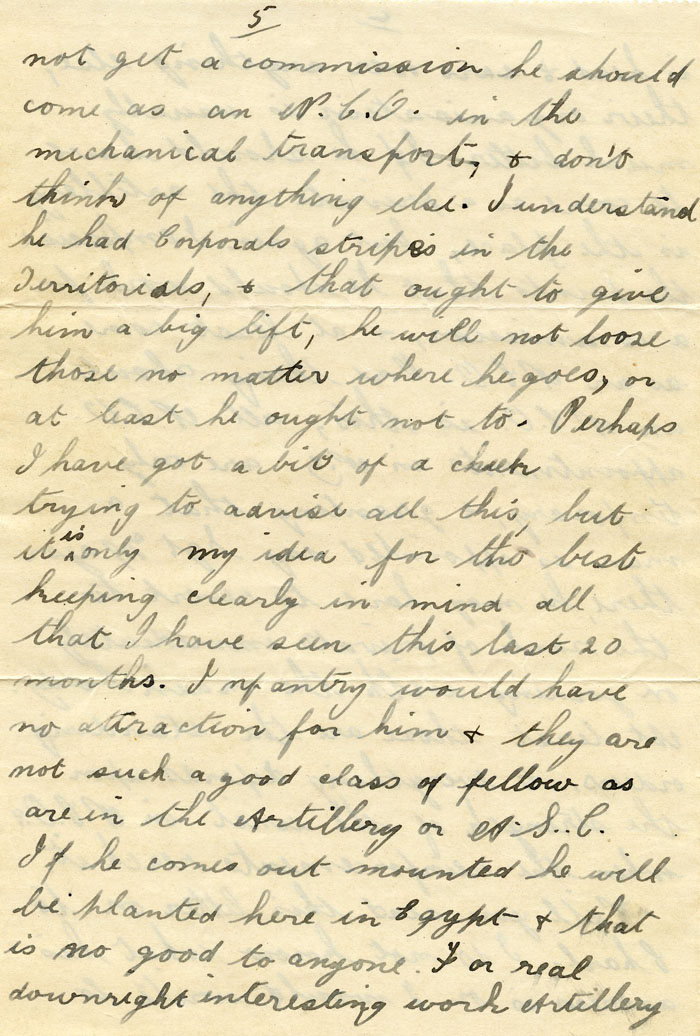 5
not get a commission he should
come as an N.C.O. in the
mechanical transport, & don't
think of anything else. I understand
he had Corporals stripes in the
Territorials, & that ought to give
him a big lift, he will not loose
those no matter where he goes, or
at least he ought not to. Perhaps
I have got a bit of a cheek
trying to advise all this, but
it is only my idea for the best
keeping clearly in mind all
that I have seen this last 20
months. Infantry would have
no attraction for him & they are
not such a good class of fellow as
are in the Artillery or A.S.C.
If he comes out mounted he will
be planted here in Egypt & that
is no good to anyone. For real
downright interesting work Artillery